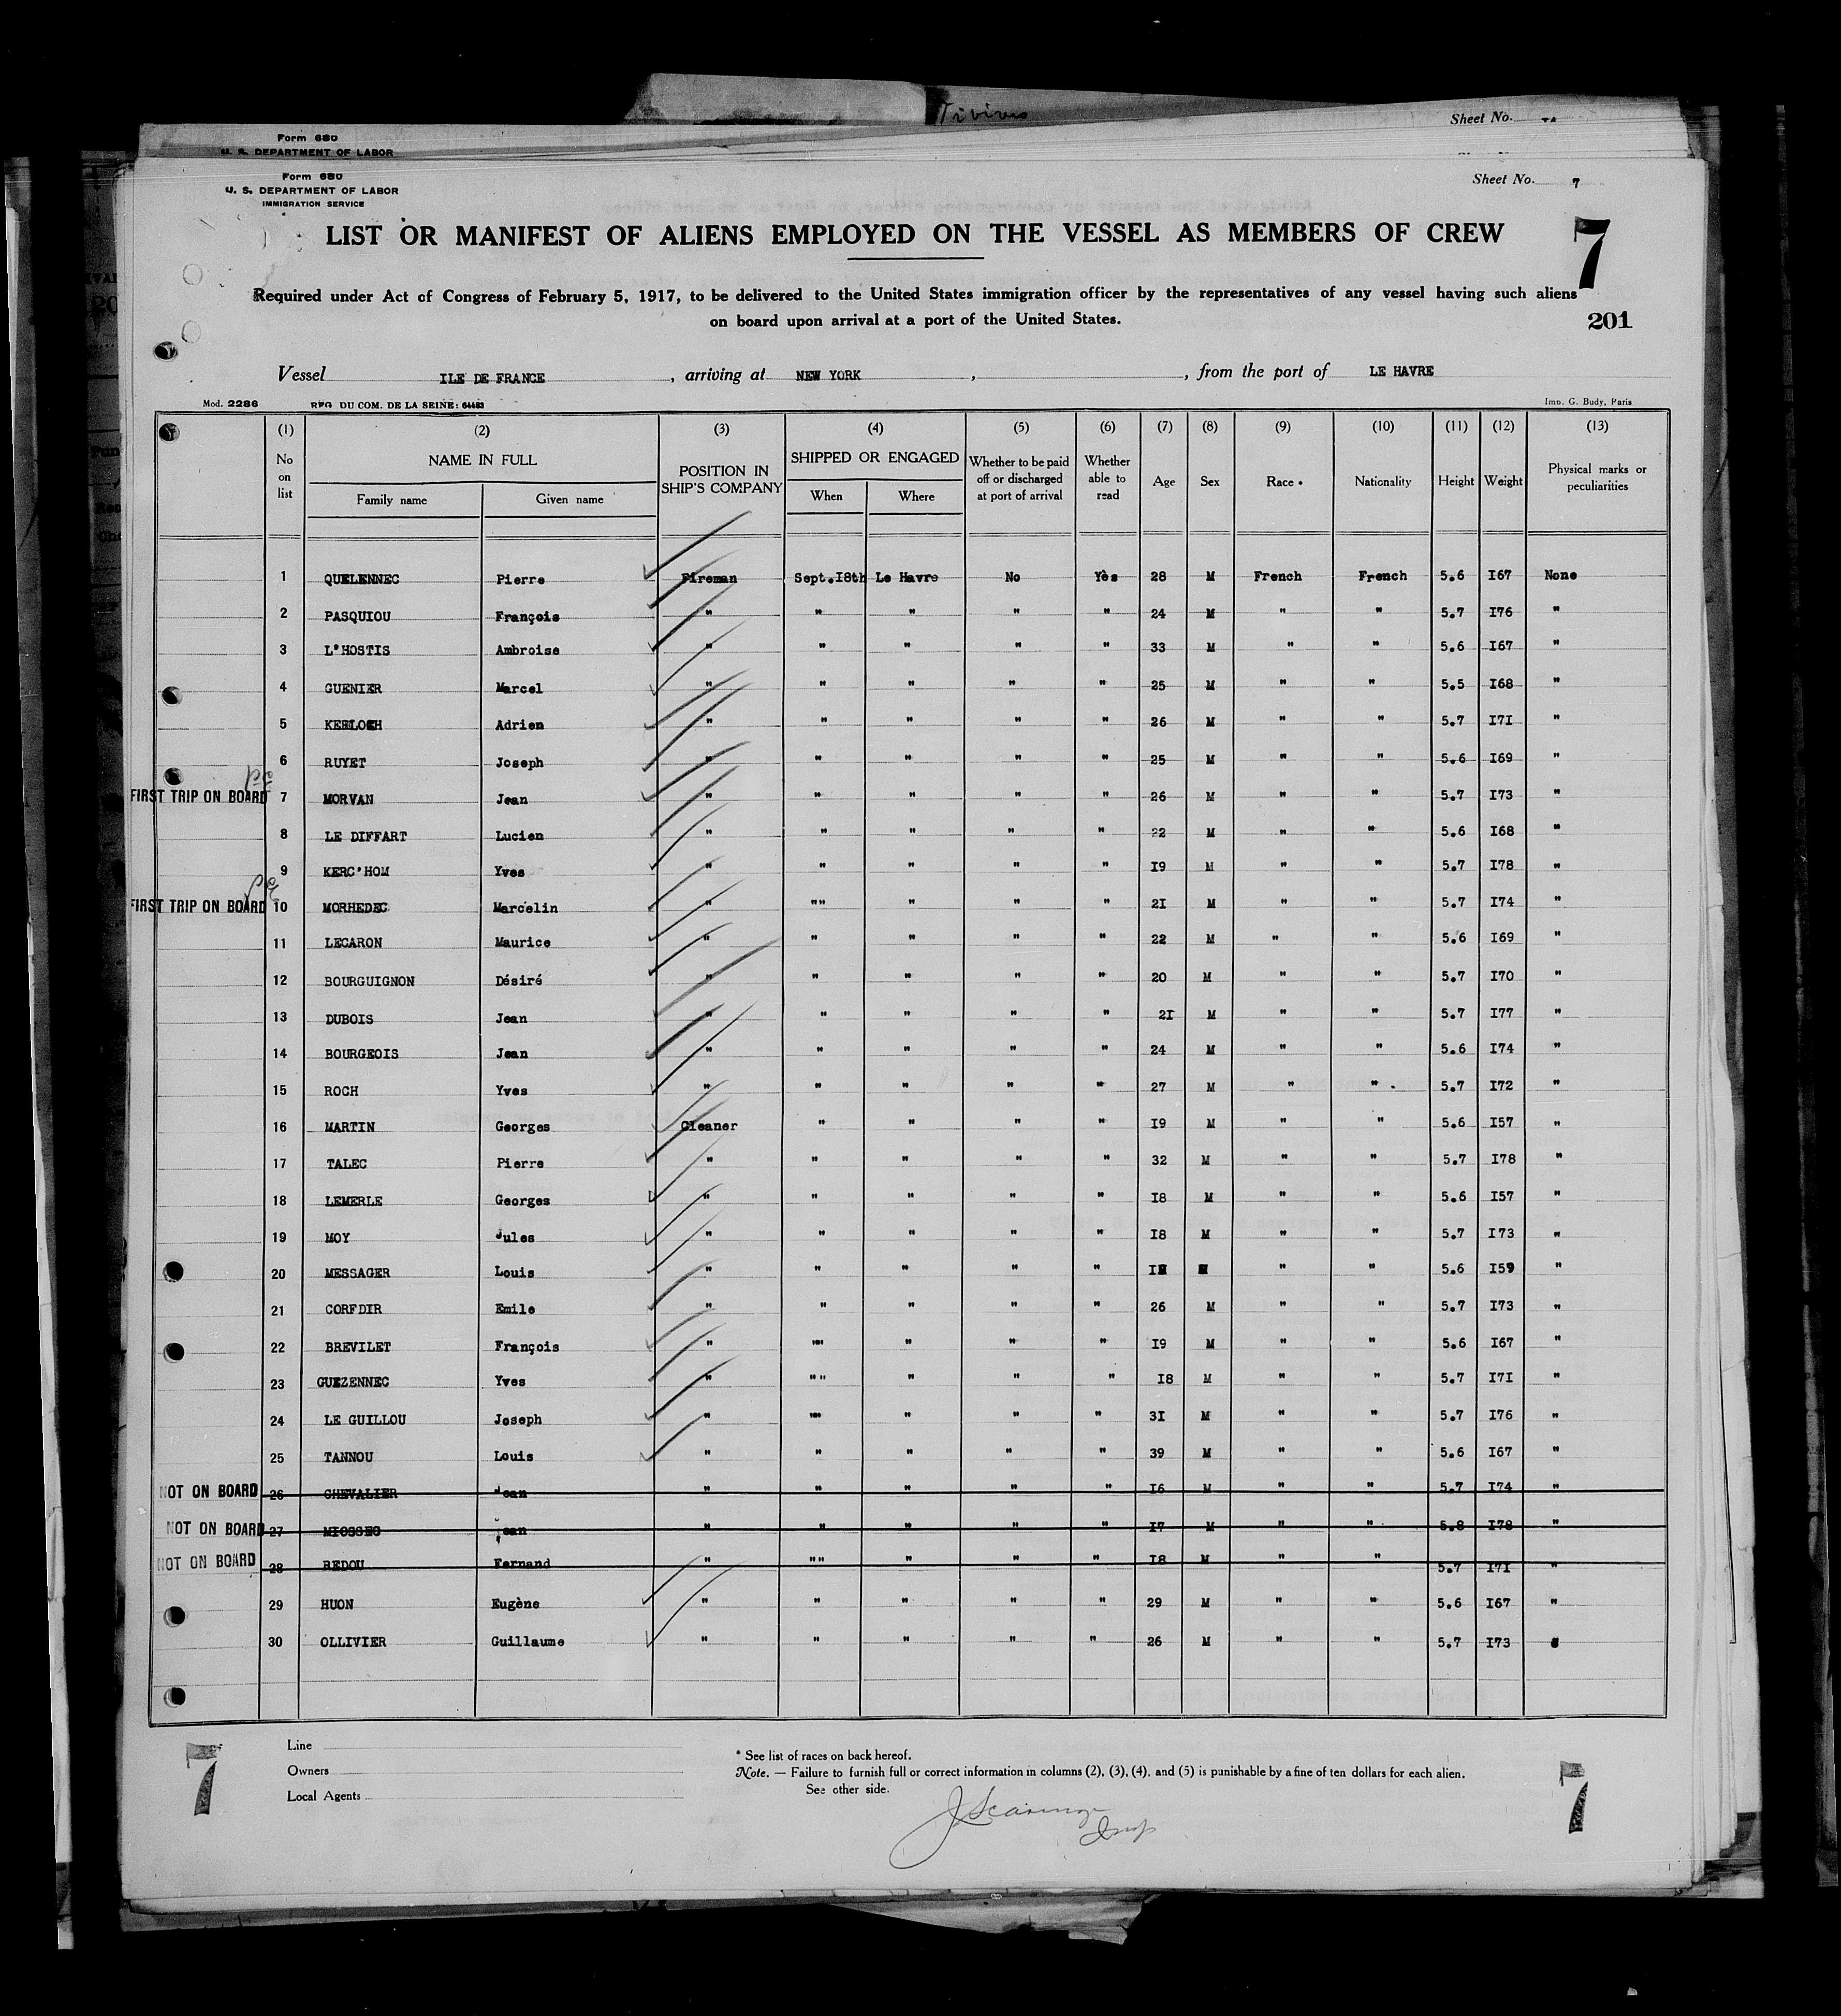 Tivives
Sheet No.
Form 680
U. S. DEPARTMENT OF LABOR
Form 680
U. S. DEPARTMENT OF LABOR
IMMIGRATION SERVICE
Sheet No. 7
LIST OR MANIFEST OF ALIENS EMPLOYED ON THE VESSEL AS MEMBERS OF CREW
7
Required under Act of Congress of February 5, 1917, to be delivered to the United States immigration officer by the representatives of any vessel having such aliens
on board upon arrival at a port of the United States.
201
Vessel ILE DE FRANCE, arriving at NEW YORK, , from the port of LE HAVRE
Mod. 2286 REG. DU COM. DE LA SEINE: 64483 Imp. G. Budy, Paris
(1) (2) (3) (4) (5) (6) (7) (8) (9) (10) (11) (12) (13)
No on list NAME IN FULL Family name Given name POSITION IN SHIP'S COMPANY SHIPPED OR ENGAGED When Where Whether to be paid off or discharged at port of arrival Whether able to read Age Sex Race * Nationality Height Weight Physical marks or peculiarities
1 QUELENNEC Pierre Fireman Sept.I8th Le Havre No Yes 28 M French French 5.6 I67 None
2 PASQUIOU François " " " " " 24 M " " 5.7 I76 "
3 L'HOSTIS Ambroise " " " " " 33 M " " 5.6 I67 "
4 GUENIER Marcel " " " " " 25 M " " 5.5 I68 "
5 KERLOCH Adrien " " " " " 26 M " " 5.7 I7I "
6 RUYET Joseph " " " " " 25 M " " 5.6 I69 "
FIRST TRIP ON BOARD 7 MORVAN Jean " " " " " 26 M " " 5.7 I73 "
8 LE DIFFART Lucien " " " " " 22 M " " 5.6 I68 "
9 KERC'HOM Yves " " " " " I9 M " " 5.7 I78 "
FIRST TRIP ON BOARD 10 MORHEDEC Marcelin " "" " " " 2I M " " 5.7 I74 "
11 LECARON Maurice " " " " " 22 M " " 5.6 I69 "
12 BOURGUIGNON Désiré " " " " " 20 M " " 5.7 I70 "
13 DUBOIS Jean " " " " " 2I M " " 5.7 I77 "
14 BOURGEOIS Jean " " " " " 24 M " " 5.6 I74 "
15 ROCH Yves " " " " " 27 M " " 5.7 I72 "
16 MARTIN Georges Cleaner " " " " I9 M " " 5.6 I57 "
17 TALEC Pierre " " " " " 32 M " " 5.7 I78 "
18 LEMERLE Georges " " " " " I8 M " " 5.6 I57 "
19 MOY Jules " " " " " I8 M " " 5.7 I73 "
20 MESSAGER Louis " " " " " M " " 5.6 I59 "
21 CORFDIR Emile " " " " " 26 M " " 5.7 I73 "
22 BREVILET François " "" " " " I9 M " " 5.6 I67 "
23 GUEZENNEC Yves " "" " " " I8 M " " 5.7 I7I "
24 LE GUILLOU Joseph " "" " " " 3I M " " 5.7 I76 "
25 TANNOU Louis " " " " " 39 M " " 5.6 I67 "
NOT ON BOARD 26 CHEVALIER Jean " " " " " I6 M " " 5.7 I74 "
NOT ON BOARD 27 MIOSSEC Jean " " " " " I7 M " " 5.8 I78 "
NOT ON BOARD 28 REDOU Fernand " "" " " " I8 M " " 5.7 I7I "
29 HUON Eugène " " " " " 29 M " " 5.6 I67 "
30 OLLIVIER Guillaume " " " " " 26 M " " 5.7 I73 "
Line
Owners
Local Agents
* See list of races on back hereof.
Note. — Failure to furnish full or correct information in columns (2), (3), (4), and (5) is punishable by a fine of ten dollars for each alien.
See other side.
Insp
7
7